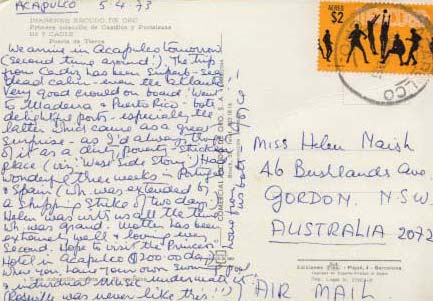 ACAPULCO 5.4.73
IMAGENES ESCUDO DE ORO
Primera colección de Castillos y Fortalezas
Nº 7 CADIZ
Puerta de Tierra
We arrive in Acapulco tomorrow
(second time around!). The trip
from Cadiz has been superb - sea
dead calm - even the Atlantic
Very good crowd on board. Went
to Madeira & Puerto Rico - both
delightful ports - especially the
latter which came as a great
surprise - as I'd always thought
of it as a dirty, poverty-stricken
place (vis: 'West Side Story'). Had
wonderful three weeks in Portugal
& Spain (wh. was extended by
a shipping strike of two days.
Helen was with us all the time
wh. was grand. Mother has been
extremely well & loving every
second. Hope to visit the Princess
Hotel in Acapulco $200.00 day
when you have your own swimming pool
& individual music underneath it
(Raswitt was never like this!!)
love from us both
COMERCIAL ESCUDO DE ORO, S.A.
AEREO
$2
Miss Helen Naish
46 Bushlands Ave.
GORDON. N.S.W.
AUSTRALIA 2072
AIR MAIL